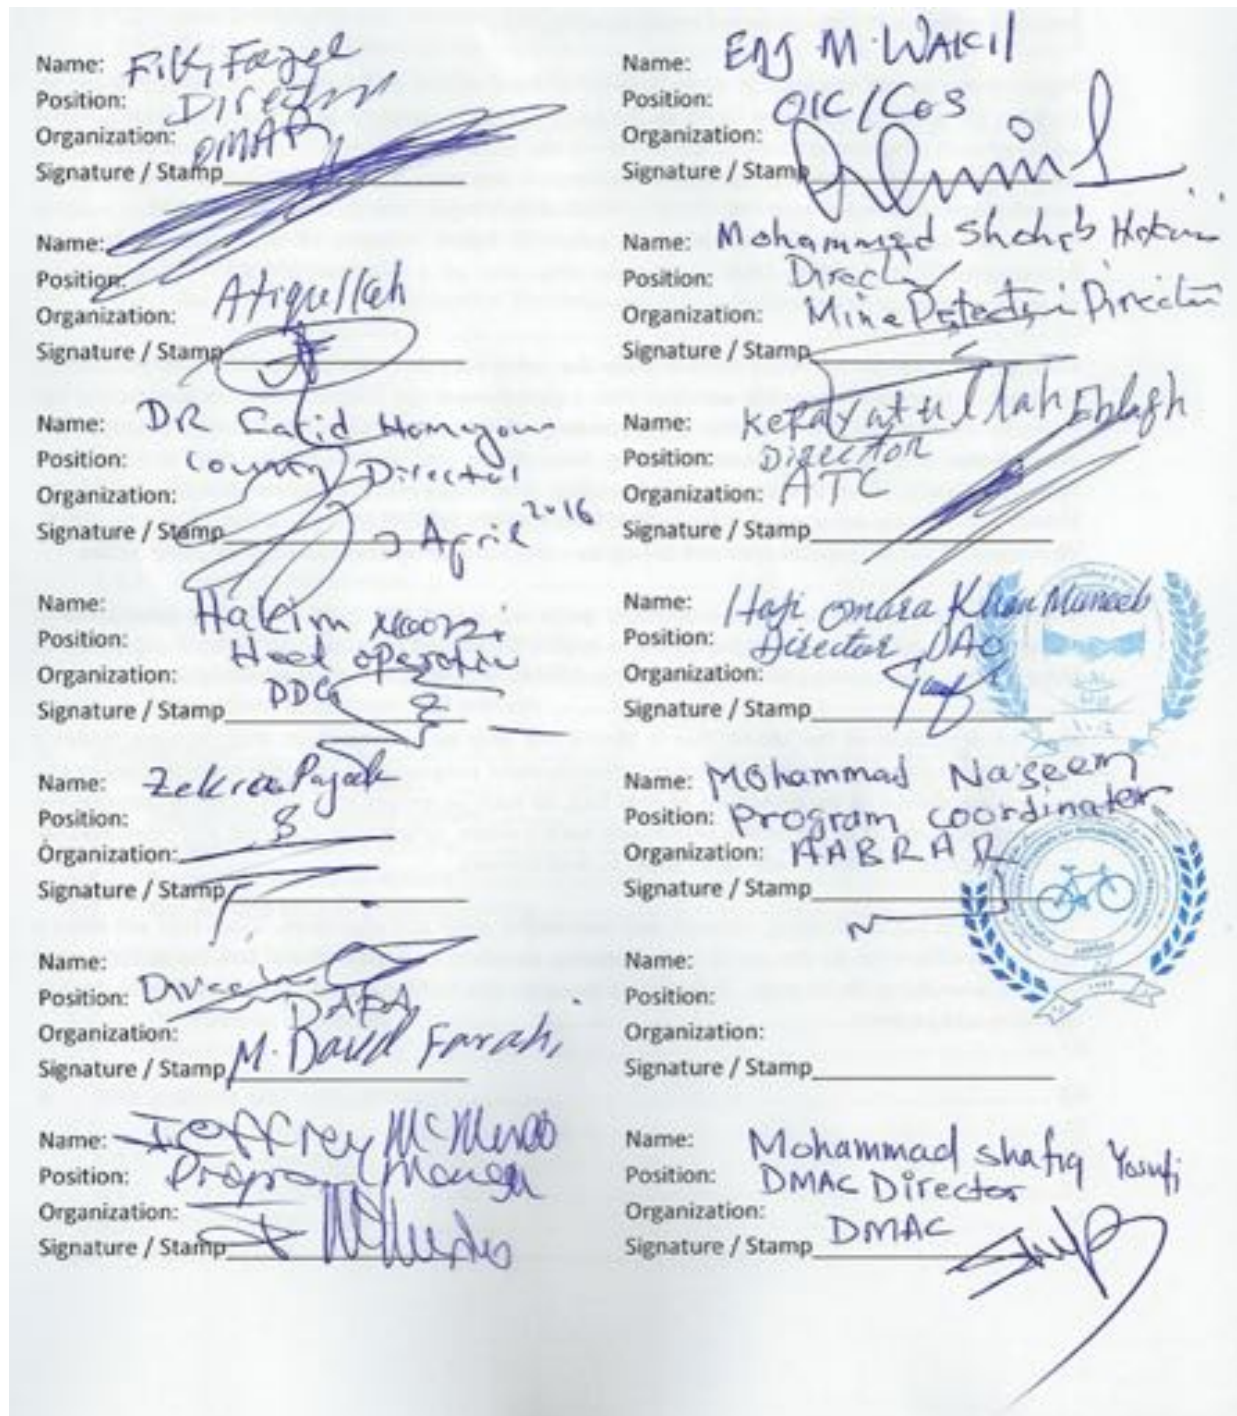 Name: Fazel
Position: Director
Organization: OMAR
Signature / Stamp
Name:
Position:
Organization: Atiqullah
Signature / Stamp
Name: DR Homayoun
Position: Country Director
Organization:
Signature / Stamp April 2016
Name: Hakim
Position: Head operation
Organization:
Signature / Stamp DDG
Name: Zekria Payab
Position:
Organization:
Signature / Stamp
Name:
Position:
Organization: DAFA
Signature / Stamp M. Daud Farahi
Name: Jeffrey McMurdo
Position: Program Manager
Organization:
Signature / Stamp
Name: Eng M. WAKIL
Position: OIC/CoS
Organization:
Signature / Stamp
Name: Mohammad Shohab Hakimi
Position: Director
Organization: Mine Detection
Signature / Stamp
Name: Kefayatullah Eblagh
Position: DIRECTOR
Organization: ATC
Signature / Stamp
Name: Haji Omara Khan Muneeb
Position: Director DAO
Organization:
Signature / Stamp
Name: Mohammad Naseem
Position: Program coordinator
Organization: AABRAR
Signature / Stamp
Name:
Position:
Organization:
Signature / Stamp
Name: Mohammad shafiq Yosufi
Position: DMAC Director
Organization:
Signature / Stamp DMAC